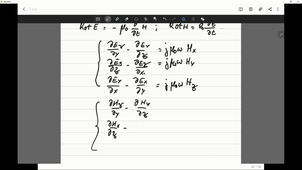 Rot E = - μ₀ ∂/∂t H ; Rot H = ε₀ ∂E/∂t
∂Ez/∂y - ∂Ey/∂z = jμ₀ω Hx
∂Ex/∂z - ∂Ez/∂x = jμ₀ω Hy
∂Ey/∂x - ∂Ex/∂y = jμ₀ω Hz
∂Hz/∂y - ∂Hy/∂z
∂Hx/∂z -